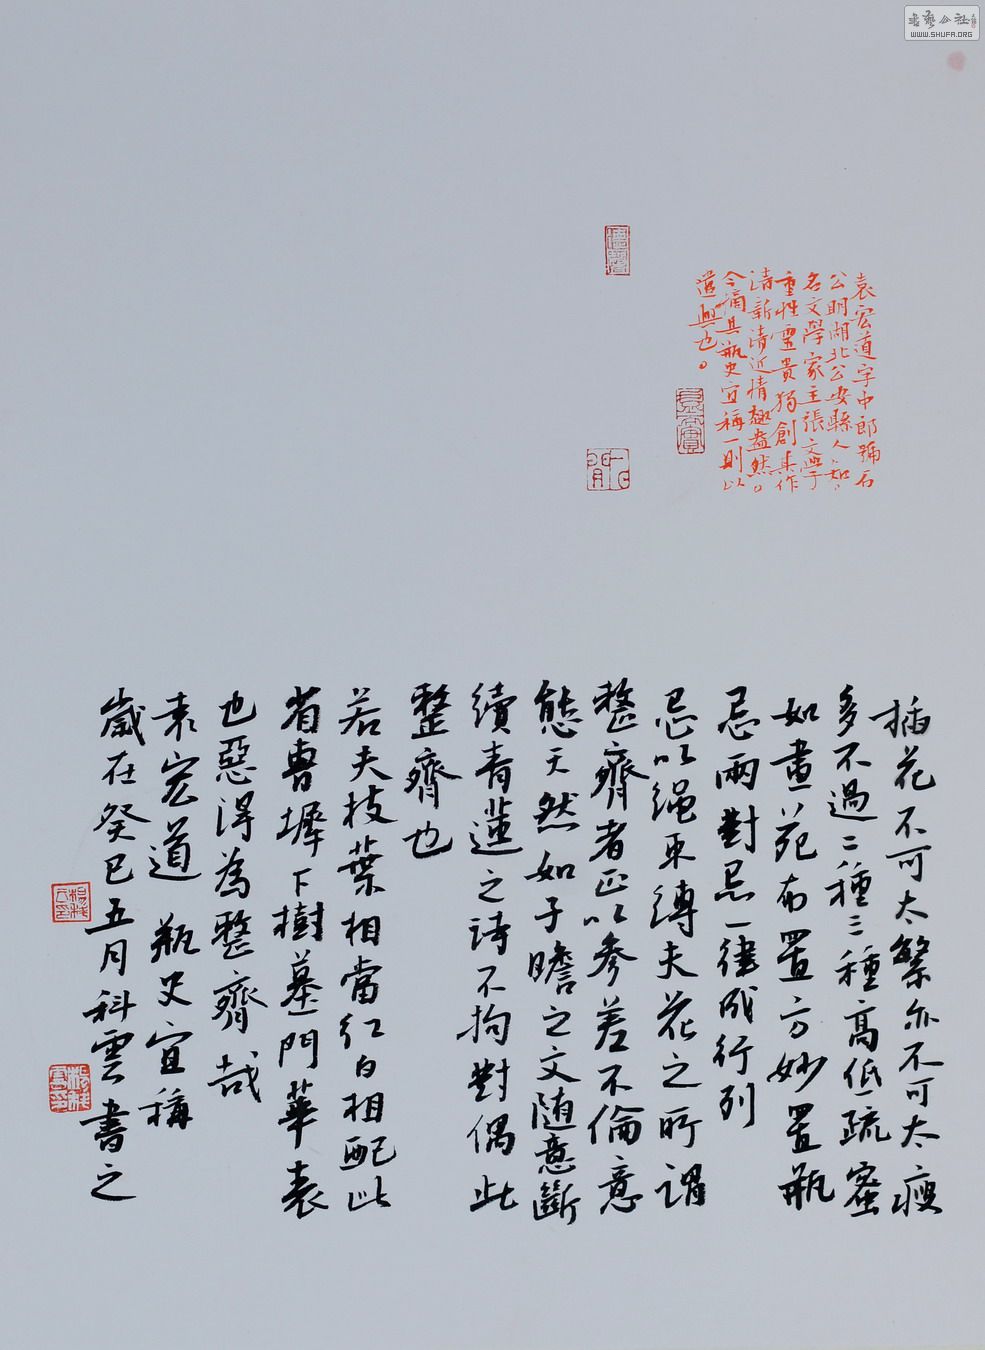 插花不可太繁亦不可太瘦
多不過二種三種高低疏密
如畫苑布置方妙置瓶
忌兩對忌一律忌成行列
忌以繩束縛夫花之所謂
整齊者正以參差不倫意
態天然如子瞻之文隨意斷
續青蓮之詩不拘對偶此
整齊也
若夫枝葉相當紅白相配此
省曹墀下樹墓門華表
也惡得為整齊哉
袁宏道 瓶史宜稱
歲在癸巳五月科雲書之
袁宏道字中郎號石
公明湖北公安縣人知
名文學家主張文學
重性靈貴獨創其作
清新清近情趣盎然。
今摘其瓶史宜稱一則以
遣興也。
書藝公社
WWW.SHUFA.ORG